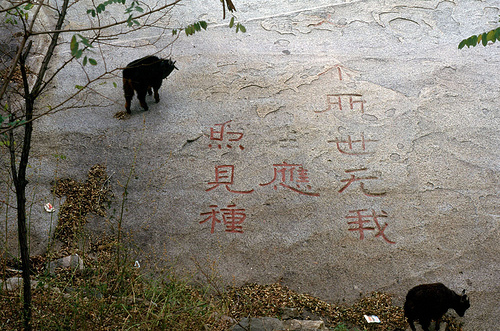 世元我
應
照見種